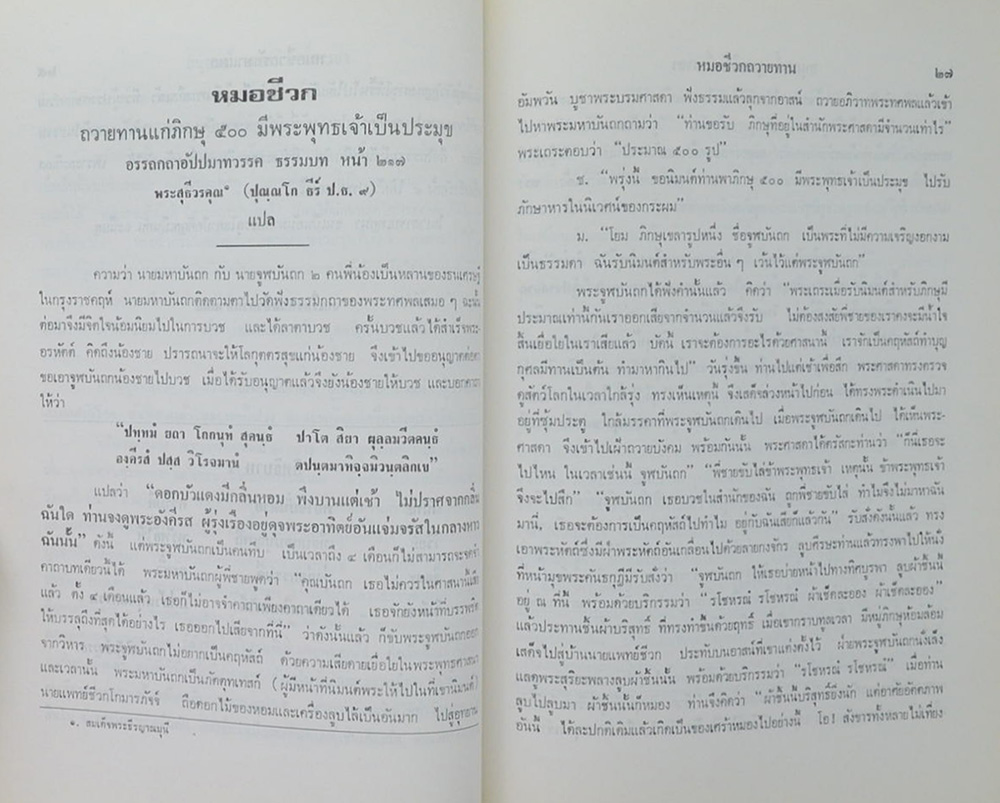 หมอชีวก
ถวายทานแก่ภิกษุ ๕๐๐ มีพระพุทธเจ้าเป็นประมุข
อรรถกถาอัปปมาทวรรค ธรรมบท หน้า ๒๑๗
พระสุธีวรคุณ๑ (ปุณฺณโก ธีร์ ป.ธ. ๙)
แปล
ความว่า นายมหาบันถก กับ นายจูฬบันถก ๒ คนพี่น้องเป็นหลานของธนเศรษฐี
ในกรุงราชคฤห์ นายมหาบันถกติดตามตาไปวัดฟังธรรมกถาของพระทศพลเสมอ ๆ ฉะนั้น
ต่อมาจึงมีจิตใจน้อมนิยมไปในการบวช และได้ลาตาบวช ครั้นบวชแล้วได้สำเร็จพระ
อรหัตต์ คิดถึงน้องชาย ปรารถนาจะให้โลกุตตรสุขแก่น้องชาย จึงเข้าไปขออนุญาตต่อตา
ขอเอาจูฬบันถกน้องชายไปบวช เมื่อได้รับอนุญาตแล้วจึงยังน้องชายให้บวช และบอกคาถา
ให้ว่า
“ปทุมํ ยถา โกกนุทํ สุคนฺธํ ปาโต สิยา ผุลฺลมวีตคนฺธํ
องฺคีรสํ ปสฺส วิโรจมานํ ตปนฺตมาทิจฺจมิวนฺตลิกฺเข”
แปลว่า “ดอกบัวแดงมีกลิ่นหอม พึงบานแต่เช้า ไม่ปราศจากกลิ่น
ฉันใด ท่านจงดูพระอังคีรส ผู้รุ่งเรืองอยู่ดุจพระอาทิตย์อันแจ่มจรัสในกลางหาว
ฉันนั้น” ดังนี้ แต่พระจูฬบันถกเป็นคนทึบ เป็นเวลาถึง ๔ เดือนก็ไม่สามารถจะจดจำ
คาถาบทเดียวนี้ได้ พระมหาบันถกผู้พี่ชายพูดว่า “คุณบันถก เธอไม่ควรในศาสนานี้เสีย
แล้ว ตั้ง ๔ เดือนแล้ว เธอก็ไม่อาจจำคาถาเพียงคาถาเดียวได้ เธอจักยังหน้าที่บรรพชิต
ให้บรรลุถึงที่สุดได้อย่างไร เธอออกไปเสียจากที่นี่” ว่าดังนั้นแล้ว ก็ขับพระจูฬบันถกออก
จากวิหาร พระจูฬบันถกไม่อยากเป็นคฤหัสถ์ ด้วยความเสียดายเยื่อใยในพระพุทธศาสนา
และเวลานั้น พระมหาบันถกเป็นภัตตุทเทสก์ (ผู้มีหน้าที่นิมนต์พระให้ไปในที่เขานิมนต์)
นายแพทย์ชีวกโกมารภัจจ์ ถือดอกไม้ของหอมและเครื่องลูบไล้เป็นอันมาก ไปสู่อุทยาน
๑. สมเด็จพระธีรญาณมุนี
หมอชีวกถวายทาน ๒๗
อัมพวัน บูชาพระบรมศาสดา ฟังธรรมแล้วลุกจากอาสน์ ถวายอภิวาทพระทศพลแล้วเข้า
ไปหาพระมหาบันถกถามว่า “ท่านขอรับ ภิกษุที่อยู่ในสำนักพระศาสดามีจำนวนเท่าไร”
พระเถระตอบว่า “ประมาณ ๕๐๐ รูป”
ช. “พรุ่งนี้ ขอนิมนต์ท่านพาภิกษุ ๕๐๐ มีพระพุทธเจ้าเป็นประมุข ไปรับ
ภักษาหารในนิเวศน์ของกระผม”
ม. “โยม ภิกษุเขลารูปหนึ่ง ชื่อจูฬบันถก เป็นพระที่ไม่มีความเจริญงอกงาม
เป็นธรรมดา ฉันรับนิมนต์สำหรับพระอื่น ๆ เว้นไว้แต่พระจูฬบันถก”
พระจูฬบันถกได้ฟังคำนั้นแล้ว คิดว่า “พระเถระเมื่อรับนิมนต์สำหรับภิกษุมี
ประมาณเท่านี้กันเราออกเสียจากจำนวนแล้วจึงรับ ไม่ต้องสงสัยพี่ชายของเราคงจะมีน้ำใจ
สิ้นเยื่อใยในเราเสียแล้ว บัดนี้ เราจะต้องการอะไรด้วยศาสนานี้ เราจักเป็นคฤหัสถ์ทำบุญ
กุศลมีทานเป็นต้น ทำมาหากินไป” วันรุ่งขึ้น ท่านไปแต่เช้าเพื่อสึก พระศาสดาทรงตรวจ
ดูสัตว์โลกในเวลาใกล้รุ่ง ทรงเห็นเหตุนี้ จึงเสด็จล่วงหน้าไปก่อน ได้ทรงพระดำเนินไปมา
อยู่ที่ซุ้มประตู ใกล้มรรคาที่พระจูฬบันถกเดินไป เมื่อพระจูฬบันถกเดินไป ได้เห็นพระ-
ศาสดา จึงเข้าไปเฝ้าถวายบังคม พร้อมกันนั้น พระศาสดาได้ตรัสกะท่านว่า “ก็นี่เธอจะ
ไปไหน ในเวลาเช่นนี้ จูฬบันถก” “พี่ชายขับไล่ข้าพระพุทธเจ้า เหตุนั้น ข้าพระพุทธเจ้า
จึงจะไปสึก” “จูฬบันถก เธอบวชในสำนักของฉัน ถูกพี่ชายขับไล่ ทำไมจึงไม่มาหาฉัน
มานี่, เธอจะต้องการเป็นคฤหัสถ์ไปทำไม อยู่กับฉันเสียก็แล้วกัน” รับสั่งดังนั้นแล้ว ทรง
เอาพระหัตถ์ซึ่งมีฝ่าพระหัตถ์อันเกลื่อนไปด้วยลายกงจักร ลูบศีรษะท่านแล้วทรงพาไปให้นั่ง
ที่หน้ามุขพระคันธกุฎีมีรับสั่งว่า “จูฬบันถก ให้เธอบ่ายหน้าไปทางทิศบูรพา ลูบผ้าชิ้นนี้
อยู่ ณ ที่นี้ พร้อมด้วยบริกรรมว่า “รโชหรณํ รโชหรณํ ผ้าเช็ดละออง ผ้าเช็ดละออง”
แล้วประทานชิ้นผ้าบริสุทธิ์ ที่ทรงทำขึ้นด้วยฤทธิ์ เมื่อเขากราบทูลเวลา มีหมู่ภิกษุห้อมล้อม
เสด็จไปสู่บ้านนายแพทย์ชีวก ประทับบนอาสน์ที่เขาแต่งตั้งไว้ ฝ่ายพระจูฬบันถกนั่งเล็ง
แลดูพระสุริยะพลางลูบผ้าชิ้นนั้น พร้อมด้วยบริกรรมว่า “รโชหรณํ รโชหรณํ” เมื่อท่าน
ลูบไปลูบมา ผ้าชิ้นนั้นก็หมอง ท่านจึงคิดว่า “ผ้าชิ้นนี้บริสุทธิ์ยิ่งนัก แต่อาศัยอัตตภาพ
อันนี้ ได้ละปกติเดิมแล้วเกิดเป็นของเศร้าหมองไปอย่างนี้ โอ! สังขารทั้งหลายไม่เที่ยง